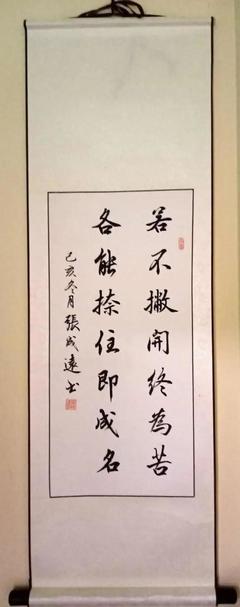 若不撇開終為苦
各能捺住即成名
己亥冬月張成遠書